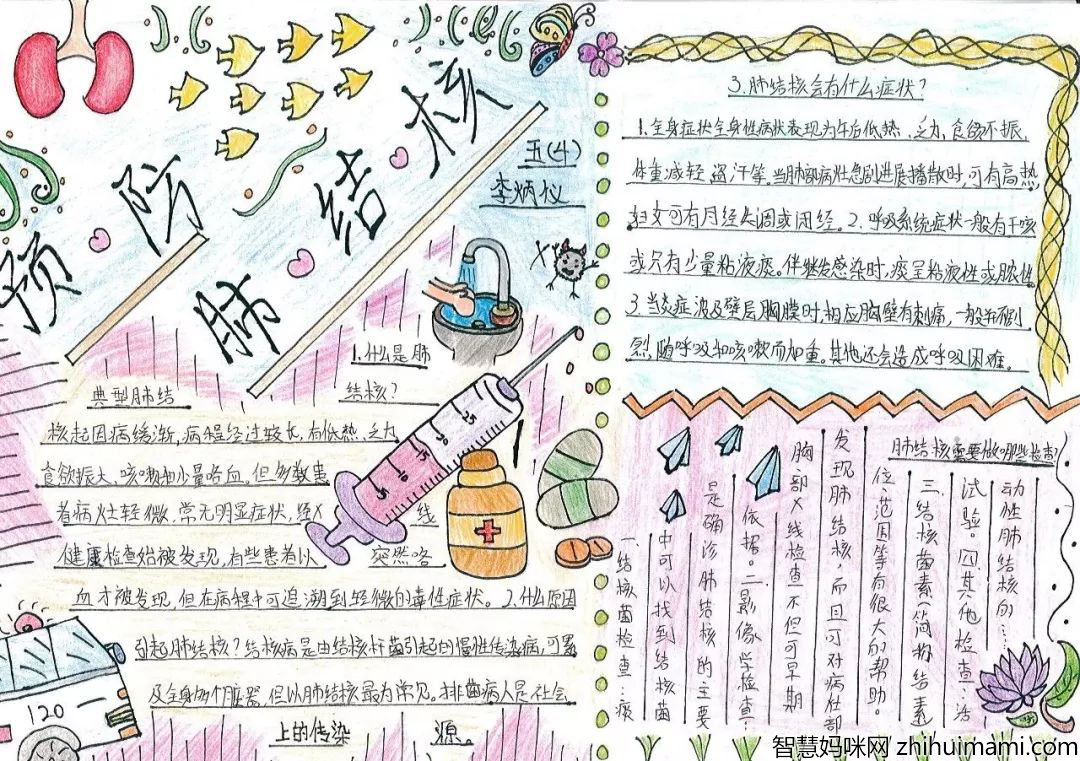 预防
肺结核
五(4)
李炳仪
1.什么是肺
结核?
典型肺结
核起因病缓渐,病程经过较长,有低热、乏力、
食欲振大、咳嗽和少量咯血。但多数患
者病灶轻微,常无明显症状,经X线
健康检查始被发现,有些患者以突然咯
血才被发现,但在病程中可追溯到轻微的毒性症状。2.什么原因
引起肺结核?结核病是由结核杆菌引起的慢性传染病,可累
及全身多个脏器,但以肺结核最为常见。排菌病人是社会
上的传染源。
120
3.肺结核会有什么症状?
1.全身症状全身性病状表现为午后低热、乏力、食欲不振、
体重减轻、盗汗等。当肺部病灶急剧进展播散时,可有高热,
妇女可有月经失调或闭经。2.呼吸系统症状一般有干咳
或只有少量粘液痰。伴继发感染时,痰呈粘液性或脓性
3.当炎症波及壁层胸膜时,相应胸壁有刺痛,一般并不剧
烈,随呼吸和咳嗽而加重。其他还会造成呼吸困难。
肺结核需要做哪些检查?
一、结核菌检查:痰
中可以找到结核菌
是确诊肺结核的主要
依据。二、影像学检查:
胸部X线检查不但可早期
发现肺结核,而且可对病灶部
位范围等有很大的帮助。
三、结核菌素(简称结素)
试验。四、其他检查:活
动性肺结核的……
智慧妈咪网 zhihuimami.com